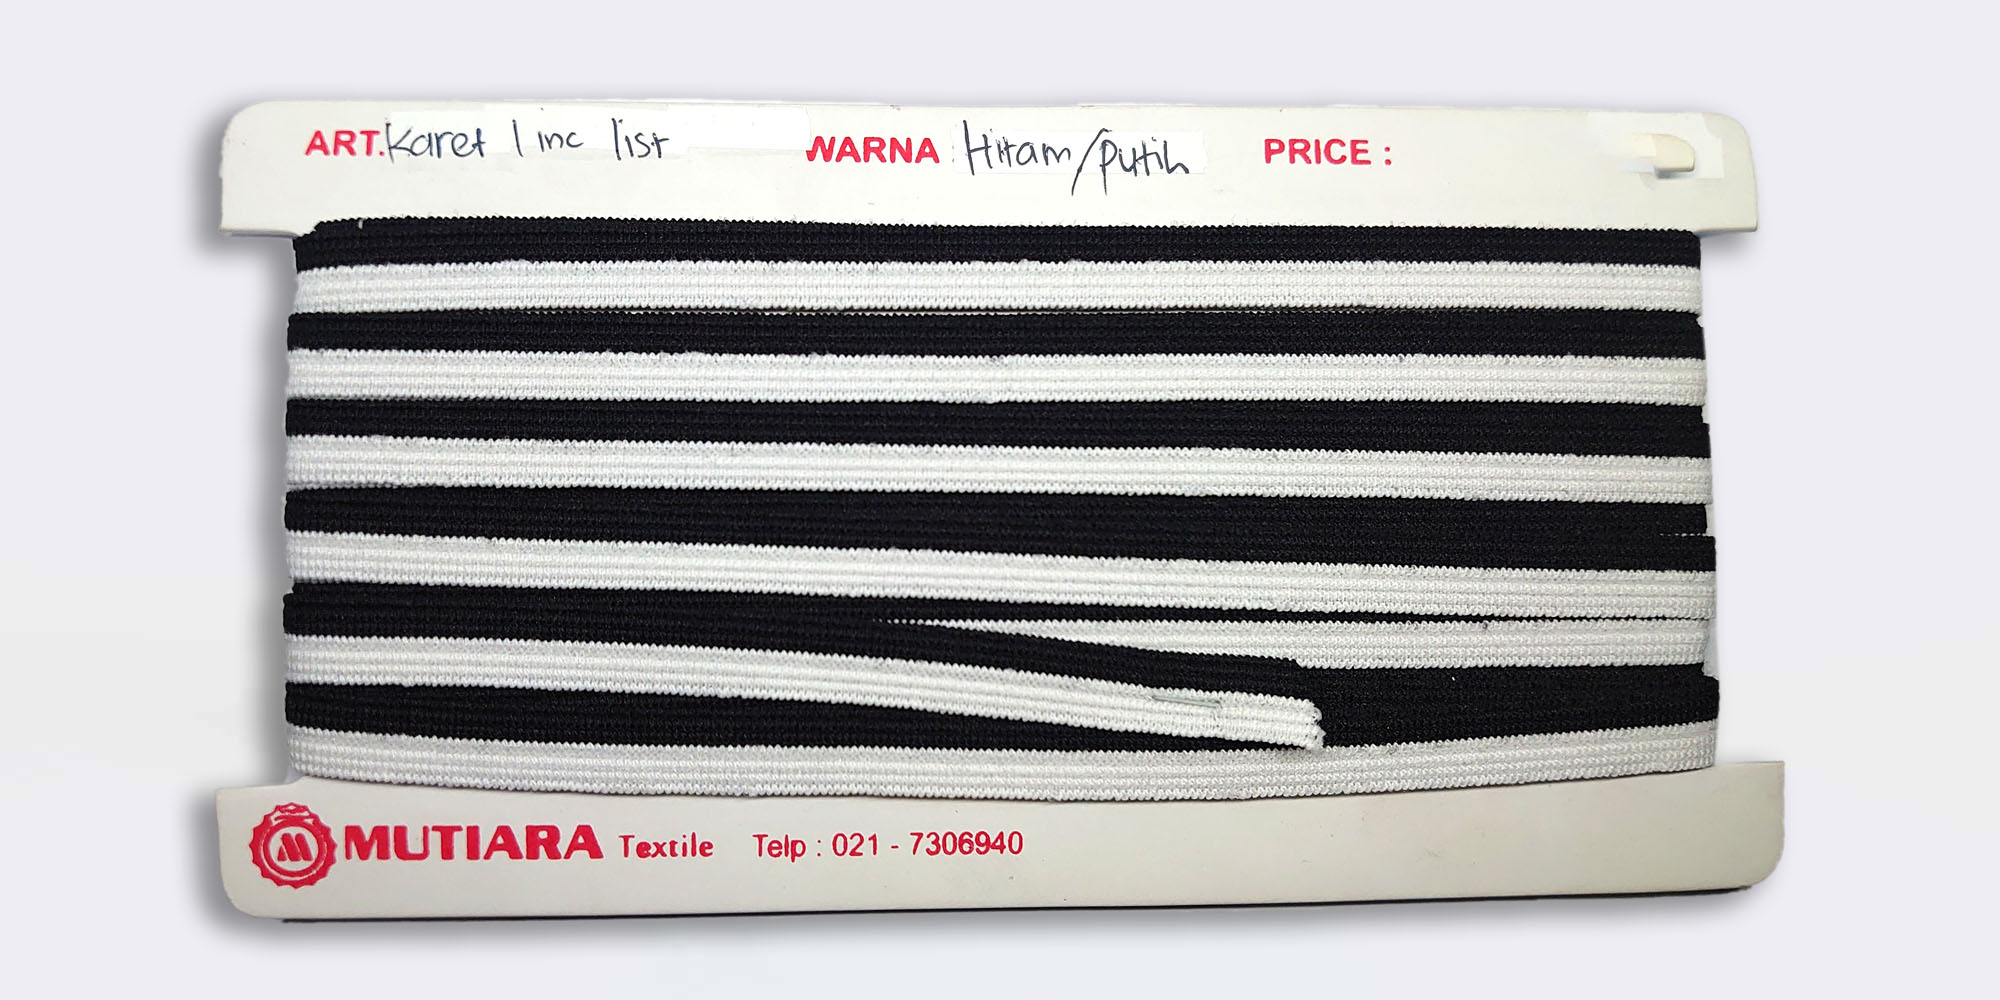 ART. Karet 1 inc list WARNA : Hitam/putih PRICE :
M MUTIARA Textile Telp : 021 - 7306940